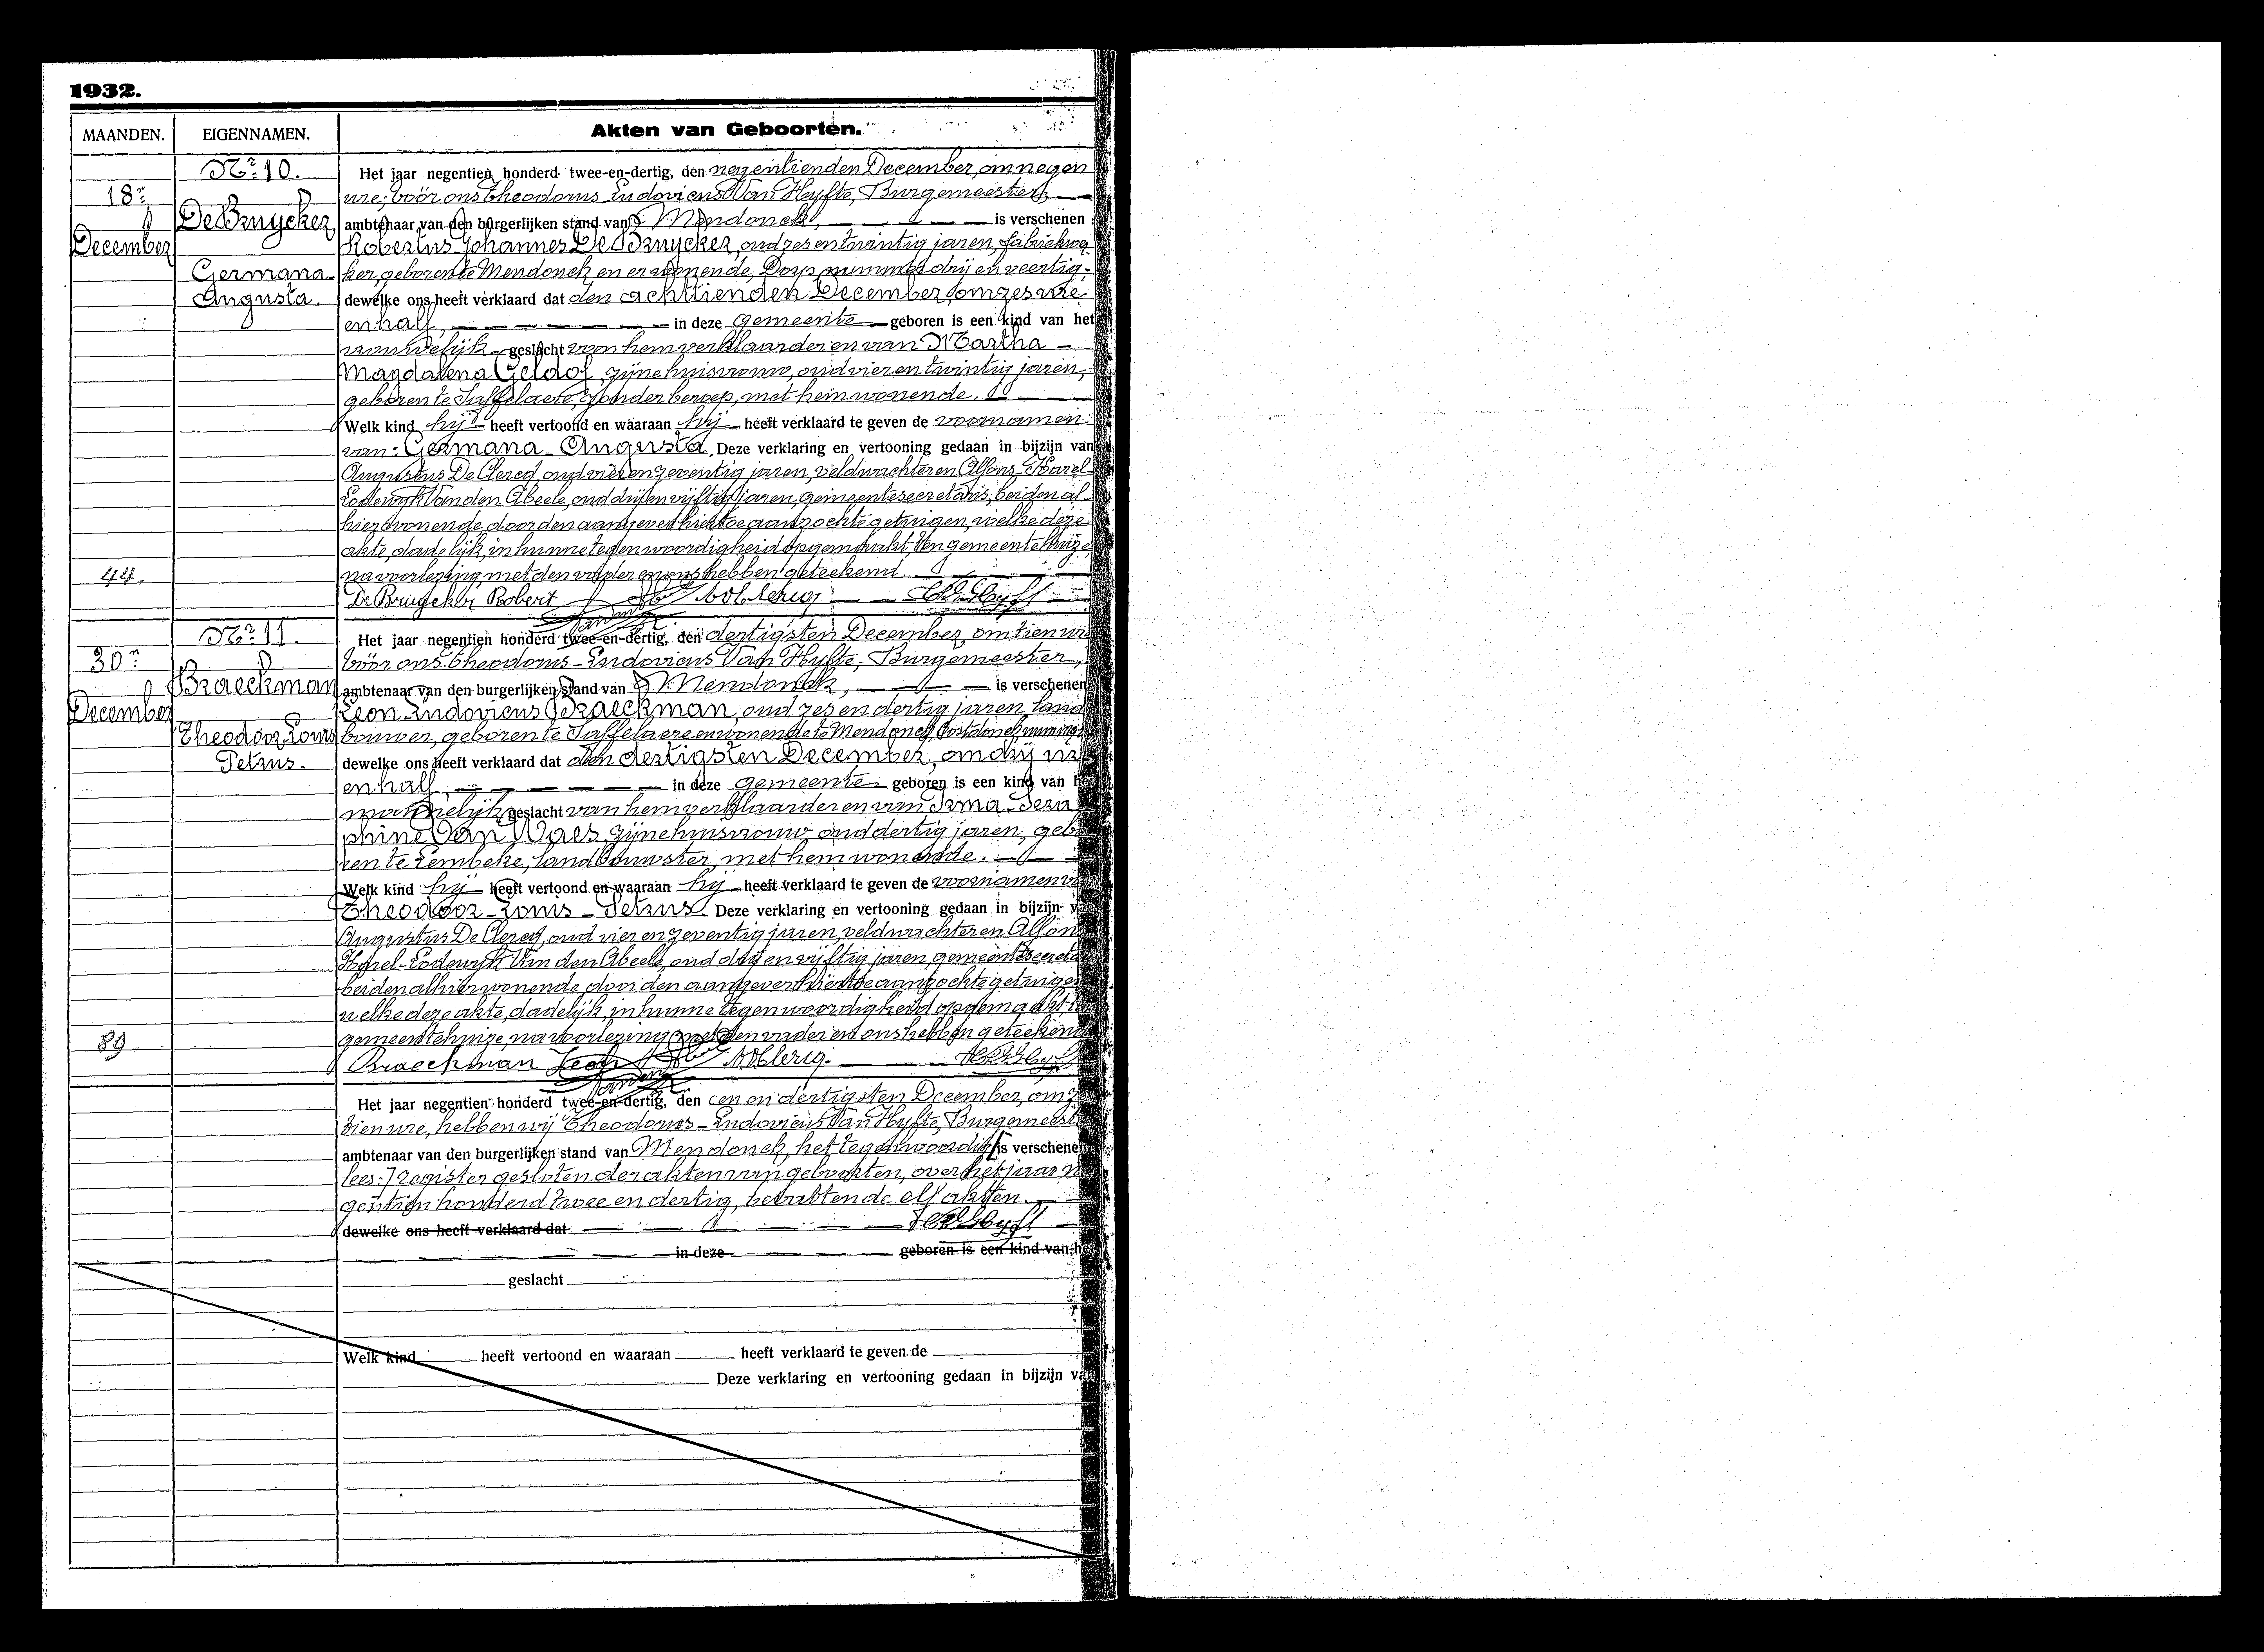 1932.
MAANDEN. EIGENNAMEN. Akten van Geboorten.
Nr. 10.
18n
December
De Bruycker
Germana
Augusta.
44.
Het jaar negentien honderd twee-en-dertig, den negentienden December, om negen
ure, vóór ons Theodorus Ludovicus Van Hyfte, Burgemeester,
ambtenaar van den burgerlijken stand van Mendonck, is verschenen :
Robertus Johannes De Bruycker, oud zes en twintig jaren, fabriekwer
ker, geboren te Mendonck en er wonende, Dorp nummer drij en veertig,
dewelke ons heeft verklaard dat den achttienden December om zes ure
en half, in deze gemeente geboren is een kind van het
vrouwelijk geslacht van hem verklaarder en van Martha
Magdalena Geldof, zijne huisvrouw, oud vier en twintig jaren,
geboren te Saffelaere, zonder beroep, met hem wonende.
Welk kind hij heeft vertoond en waaraan hij heeft verklaard te geven de voornamen
van: Germana Augusta. Deze verklaring en vertooning gedaan in bijzijn van
Augustus De Clercq, oud vier en zeventig jaren, veldwachter en Alfons-Karel-
Lodewyk Van den Abeele, oud drij en vijftig jaren, gemeentesecretaris, beiden al
hier wonende, door den aangever hiertoe aanzochte getuigen, welke deze
akte, dadelijk, in hunne tegenwoordigheid opgemaakt, ten gemeentehuize,
na voorlezing, met den vader en ons hebben geteekend.
De Bruycker Robert
Nr. 11.
30n
December
Braeckman
Theodoor Louis
Petrus.
89.
Het jaar negentien honderd twee-en-dertig, den dertigsten December, om tien ure
vóór ons Theodorus-Ludovicus Van Hyfte, Burgemeester,
ambtenaar van den burgerlijken stand van Mendonck, is verschenen
Leon Ludovicus Braeckman, oud zes en dertig jaren, land
bouwer, geboren te Saffelaere en wonende te Mendonck,
dewelke ons heeft verklaard dat den dertigsten December, om drij ure
en half, in deze gemeente geboren is een kind van het
mannelijk geslacht van hem verklaarder en van Irma-Sera
phine Van Waes, zijne huisvrouw, oud dertig jaren, gebo
ren te Lembeke, landbouwster, met hem wonende.
Welk kind hij heeft vertoond en waaraan hij heeft verklaard te geven de voornamen
Theodoor-Louis-Petrus. Deze verklaring en vertooning gedaan in bijzijn van
Augustus De Clercq, oud vier en zeventig jaren, veldwachter en Alfons
Karel-Lodewyk Van den Abeele, oud drij en vijftig jaren, gemeentesecreta
beiden alhier wonende door den aangever hiertoe aanzochte getuigen
welke deze akte, dadelijk, in hunne tegenwoordigheid opgemaakt, ten
gemeentehuize, na voorlezing met den vader en ons hebben geteekend
Braeckman Leon
Het jaar negentien honderd twee-en-dertig, den een en dertigsten December, om ze
tien ure, hebben wij Theodorus-Ludovicus Van Hyfte, Burgemeester
ambtenaar van den burgerlijken stand van Mendonck, het tegenwoordig [is verschenen
lees:] register gesloten der akten van geboorten, over het jaar ne
gentien honderd twee en dertig, bevattende elf akten.
dewelke ons heeft verklaard dat
in deze geboren is een kind van het
geslacht
Welk kind heeft vertoond en waaraan heeft verklaard te geven de
Deze verklaring en vertooning gedaan in bijzijn van